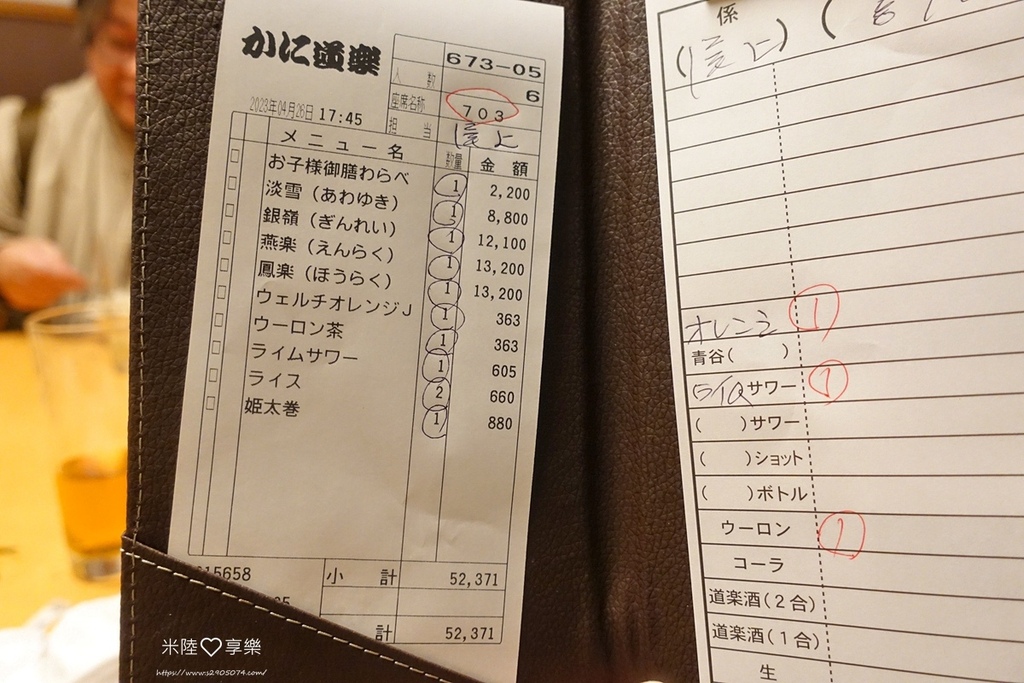 かに道楽
673-05
人数 6
座席名称 703
2023年04月26日 17:45
担当
メニュー名 数量 金額
お子様御膳わらべ 1 2,200
淡雪（あわゆき） 1 8,800
銀嶺（ぎんれい） 1 12,100
燕楽（えんらく） 1 13,200
鳳楽（ほうらく） 1 13,200
ウェルチオレンジJ 1 363
ウーロン茶 1 363
ライムサワー 1 605
ライス 2 660
姫太巻 1 880
15658 小計 52,371
計 52,371
係
オレンジ 1
青谷（ ）
ライム サワー 1
（ ）サワー
（ ）ショット
（ ）ボトル
ウーロン 1
コーラ
道楽酒（2合）
道楽酒（1合）
生
米陸♡享樂
https://www.s2905074.com/